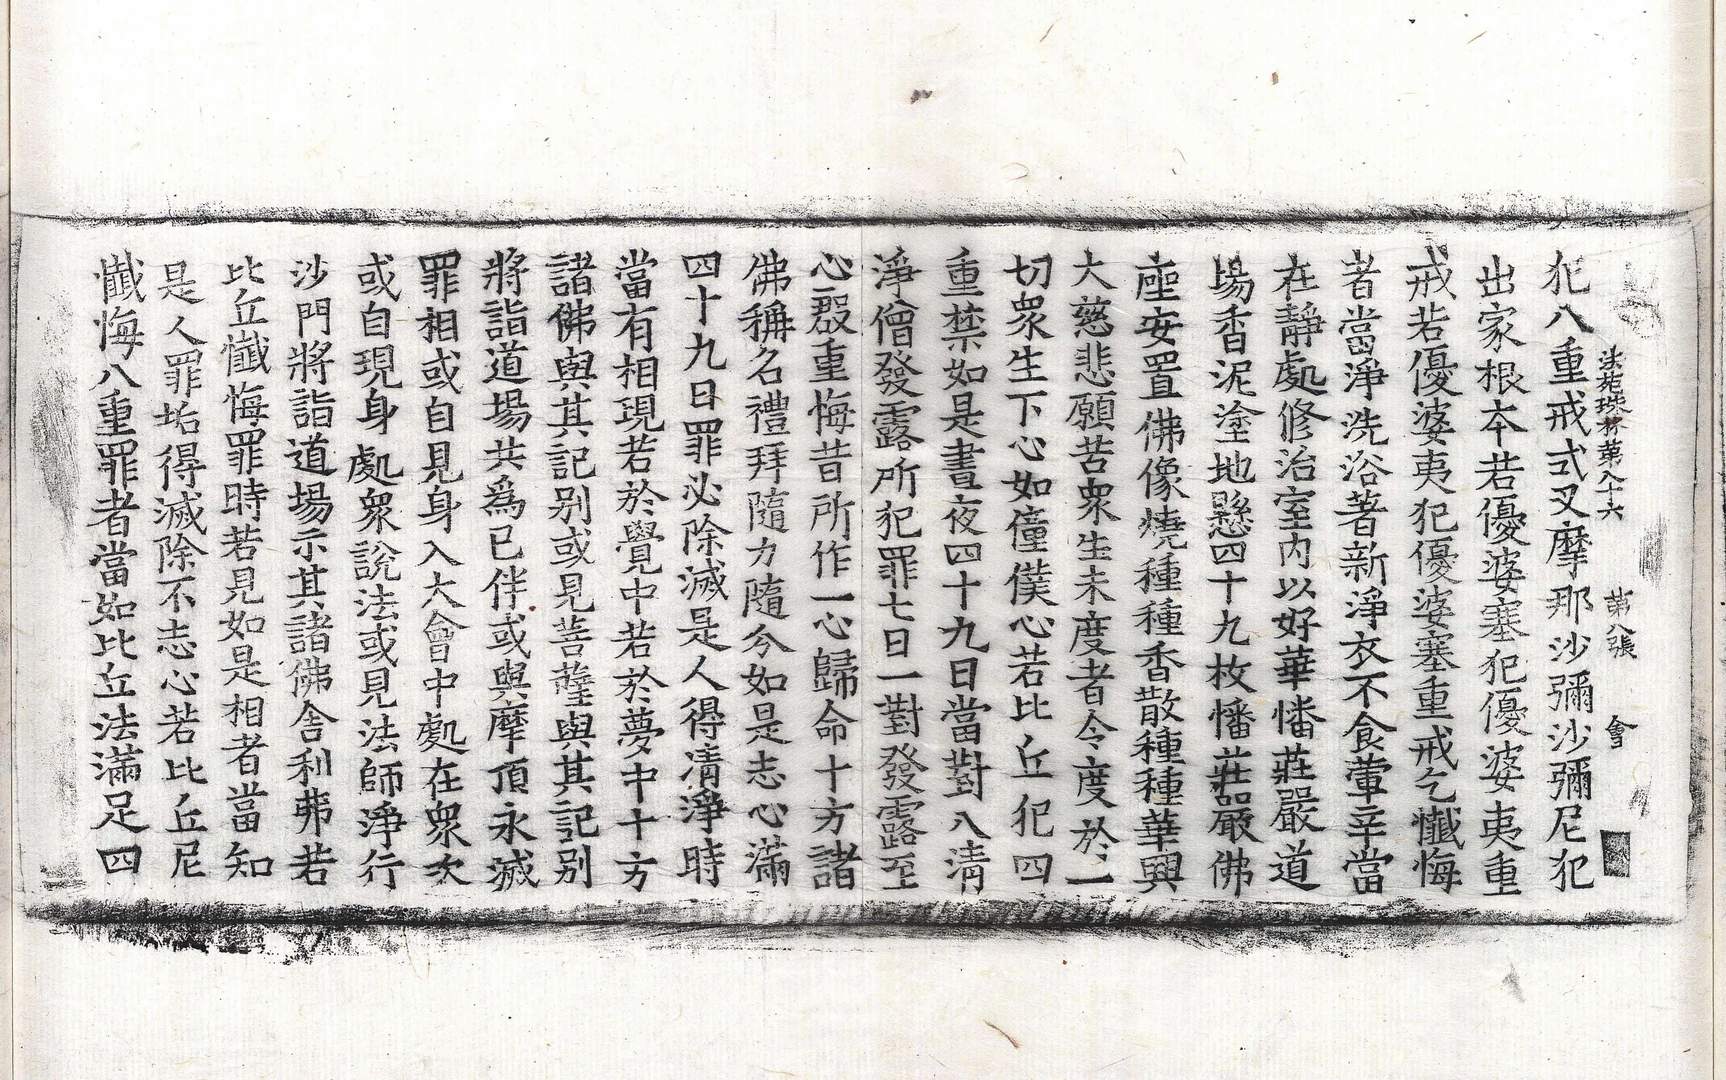 法苑珠林第八十六　第八張　會
犯八重戒式叉摩那沙彌沙彌尼犯
出家根本若優婆塞犯優婆夷重
戒若優婆夷犯優婆塞重戒乞懺悔
者當淨洗浴著新淨衣不食葷辛當
在靜處修治室內以好華幡莊嚴道
場香泥塗地懸四十九枚幡莊嚴佛
座安置佛像燒種種香散種種華興
大慈悲願苦衆生未度者令度於一
切衆生下心如僮僕心若比丘犯四
重禁如是晝夜四十九日當對八清
淨僧發露所犯罪七日一對發露至
心殷重悔昔所作一心歸命十方諸
佛稱名禮拜隨力隨分如是志心滿
四十九日罪必除滅是人得淸淨時
當有相現若於覺中若於夢中十方
諸佛與其記别或見菩薩與其記别
將詣道場共爲已伴或與摩頂永滅
罪相或自見身入大會中處在衆次
或自現身處衆說法或見法師淨行
沙門將詣道場示其諸佛舍利弗若
比丘懺悔罪時若見如是相者當知
是人罪垢得滅除不志心若比丘尼
懺悔八重罪者當如比丘法滿足四